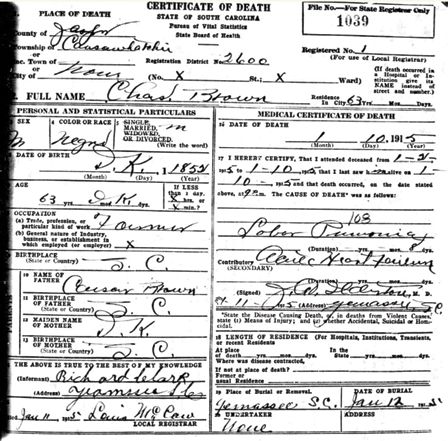 PLACE OF DEATH
CERTIFICATE OF DEATH
STATE OF SOUTH CAROLINA
Bureau of Vital Statistics
State Board of Health
File No.—For State Registrar Only
1039
County of
Township of Coosawhatchie
Inc. Town of
City of
Registration District No. 2600
Registered No. 1
(For use of Local Registrar)
(No. X St.; X Ward)
(If death occurred in a Hospital or Institution give its NAME instead of street and number.)
FULL NAME Chas. Brown
Residence In City 63 yrs. mos. days.
PERSONAL AND STATISTICAL PARTICULARS
SEX
M
4 COLOR OR RACE
Negro
SINGLE, MARRIED, WIDOWED, OR DIVORCED. (Write the word)
m
DATE OF BIRTH
D.K. 1852
(Month) (Day) (Year)
AGE
63 yrs. D.K. mos. ds.
If LESS than 1 day, X hrs. or X min.?
OCCUPATION
(a) Trade, profession, or particular kind of work Farmer
(b) General nature of Industry, business, or establishment in which employed (or employer) X
BIRTHPLACE
(State or Country) S. C.
10 NAME OF FATHER
Caesar Brown
11 BIRTHPLACE OF FATHER
(State or Country)
12 MAIDEN NAME OF MOTHER
D. K.
13 BIRTHPLACE OF MOTHER
(State or Country) S. C.
THE ABOVE IS TRUE TO THE BEST OF MY KNOWLEDGE
(Informant) Richard
(Address)
Jan 11 1915 Louis McCaw
LOCAL REGISTRAR
MEDICAL CERTIFICATE OF DEATH
16 DATE OF DEATH
1 10 1915
(Month) (Day) (Year)
17 I HEREBY CERTIFY, That I attended deceased from 1-2-
1915 to 1-10-1915 that I last saw alive on 1-
10-1915 and that death occurred, on the date stated
above, at m. The CAUSE OF DEATH was as follows:
108
Lobar Pneumonia
(Duration) yrs. mos. 8 ds.
Contributory Heart Failure
(SECONDARY)
(Duration) yrs. mos. ds.
(Signed) M. D.
1-11-1915 (Address) Yemassee, S.C.
State the Disease Causing Death, or, in deaths from Violent Causes, state (1) Means of Injury; and (2) whether Accidental, Suicidal or Homicidal.
18 LENGTH OF RESIDENCE (For Hospitals, Institutions, Transients, or recent Residents)
At place of death yrs. mos. ds. In the State yrs. mos. ds.
Where was disease contracted,
If not at place of death?
Former or usual residence
19 Place of Burial or Removal.
Yemassee S.C.
DATE OF BURIAL
Jan 12 1915
UNDERTAKER
None
ADDRESS